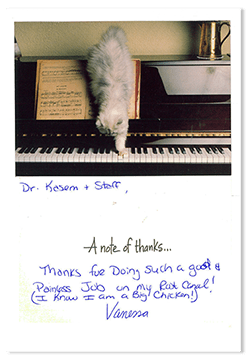 Dr. Kosem + Staff,
A note of thanks...
Thanks for Doing such a good &
Painless Job on my Root Canal!
(I Know I am a Big Chicken!)
Vanessa